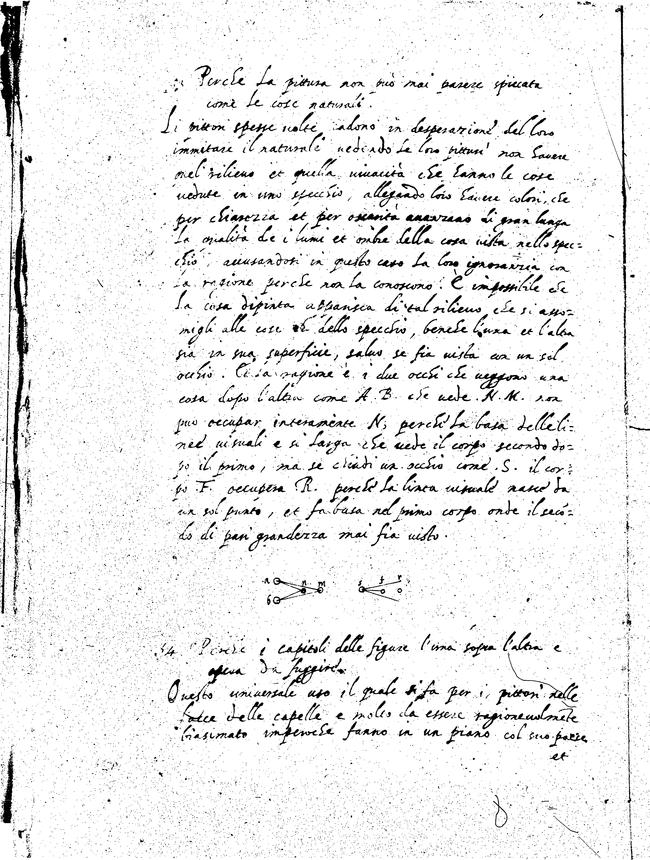 Perche la pittura non può mai parere spiccata
come le cose naturali.
Li pittori spesse uolte cadono in desperatione del loro
immitare il naturale uedendo le loro pitture non hauere
quel rilieuo et quella uiuacità che hanno le cose
uedute in uno specchio, allegando loro hauere colori, che
per chiarezza et per oscurità auanzano di gran lunga
la qualità de i lumi et ombre della cosa uista nello spec=
chio, accusandosi in questo caso la loro ignoranzia con
la ragione perche non la conoscono. È impossibile che
la cosa dipinta apparisca di tal rilieuo, che si asso=
migli alle cose dello specchio, benche l'una et l'altra
sia in sua superficie, saluo se fia uista con un sol
occhio. Et la ragione è i due occhi che ueggono una
cosa dopo l'altra come A. B. che uede. N. M. non
può occupar interamente N; perche la basa delle li=
nee uisuali e si larga che uede il corpo secondo do=
po il primo, ma se chiudi un occhio come .S. il cor=
po .F. occupera R. perche la linea uisuale nasce da
un sol punto, et fa basa nel primo corpo onde il seco=
do di pari grandezza mai fia uisto.
a n m s f r
b
54 Perche i capitoli delle figure l'una sopra l'altra e
opera da fuggire.
Questo uniuersale uso il quale si fa per i pittori nelle
facce delle capelle e molto da essere ragioneuolmete
biasimato imperoche fanno in un piano col suo paese
et
8